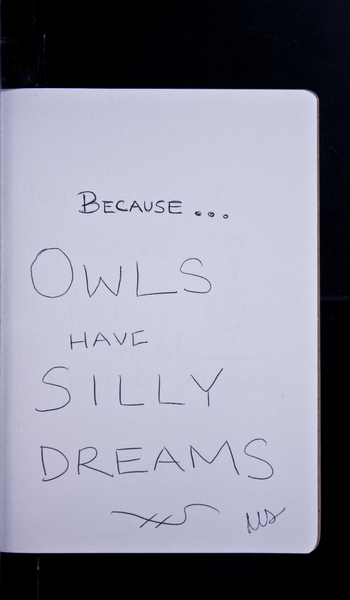 BECAUSE...
OWLS
HAVE
SILLY
DREAMS